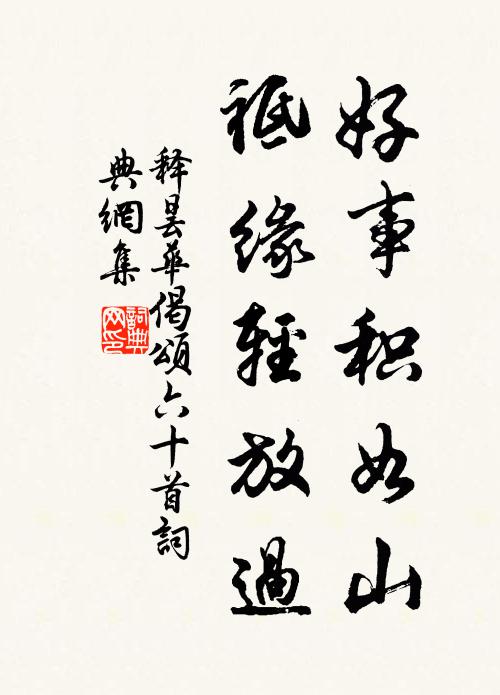 好事积如山
祗缘輕放過
释昙華偈頌六十首詞
典網集
詞典网印